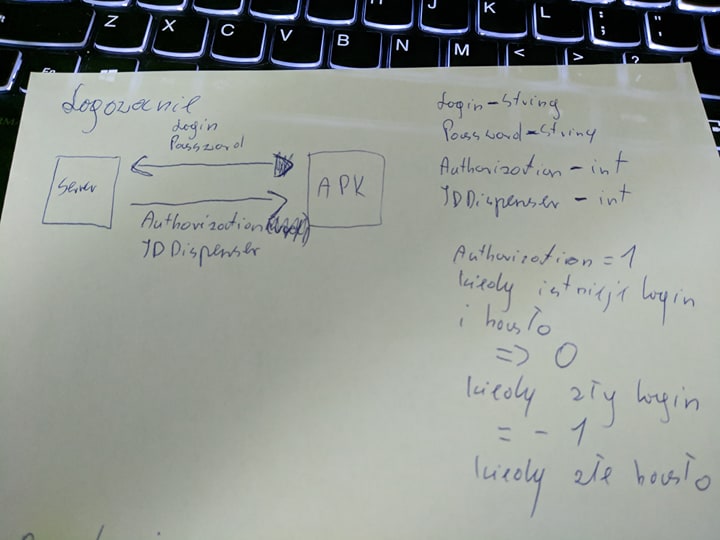 Z X C V B N M < > ?
J K L : ;
" '
Logowanie
Login
Password
Server
APK
Authorization
IDDispenser
Login - String
Password - String
Authorization - int
IDDispenser - int
Authorization = 1
kiedy istnieje login
i hasło
=> 0
kiedy zły login
= - 1
kiedy złe hasło